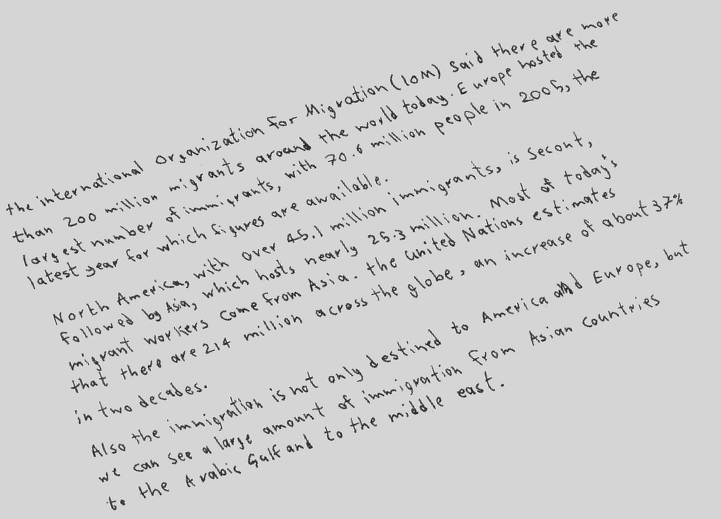 the international Organization for Migration (IOM) said there are more
than 200 million migrants around the world today. Europe hosted the
largest number of immigrants, with 70.6 million people in 2005, the
latest year for which figures are available.
North America, with over 45.1 million immigrants, is Secont,
followed by Asia, which hosts nearly 25.3 million. Most of today's
migrant workers come from Asia. the united Nations estimates
that there are 214 million across the globe, an increase of about 37%
in two decades.
Also the immigration is not only destined to America and Europe, but
we can see a large amount of immigration from Asian Countries
to the Arabic Gulf and to the middle east.